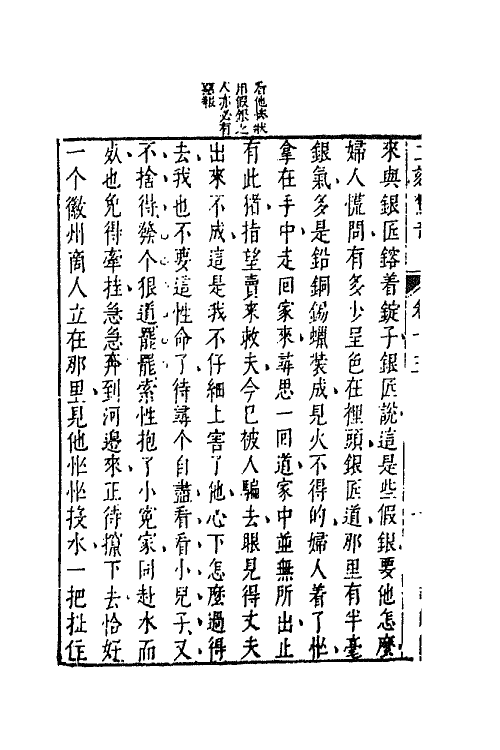 看他慘狀
用假銀之
人亦必有
惡報
二刻驚奇
卷十五
來與銀匠鎔着錠子銀匠說這是些假銀要他怎麼
婦人慌問有多少呈色在裡頭銀匠道那里有半毫
銀氣多是鉛銅錫蠟裝成見火不得的婦人着了忙
拿在手中走回家來尋思一回道家中並無所出止
有此猪指望賣來救夫今已被人騙去眼見得丈夫
出來不成這是我不仔細上害了他心下怎麼過得
去我也不要這性命了待尋个自盡看看小兒子又
不捨得發个狠道罷罷索性抱了小冤家同赴水而
死也免得牽挂急急奔到河邊來正待攛下去恰好
一个徽州商人立在那里見他忙忙投水一把扯住